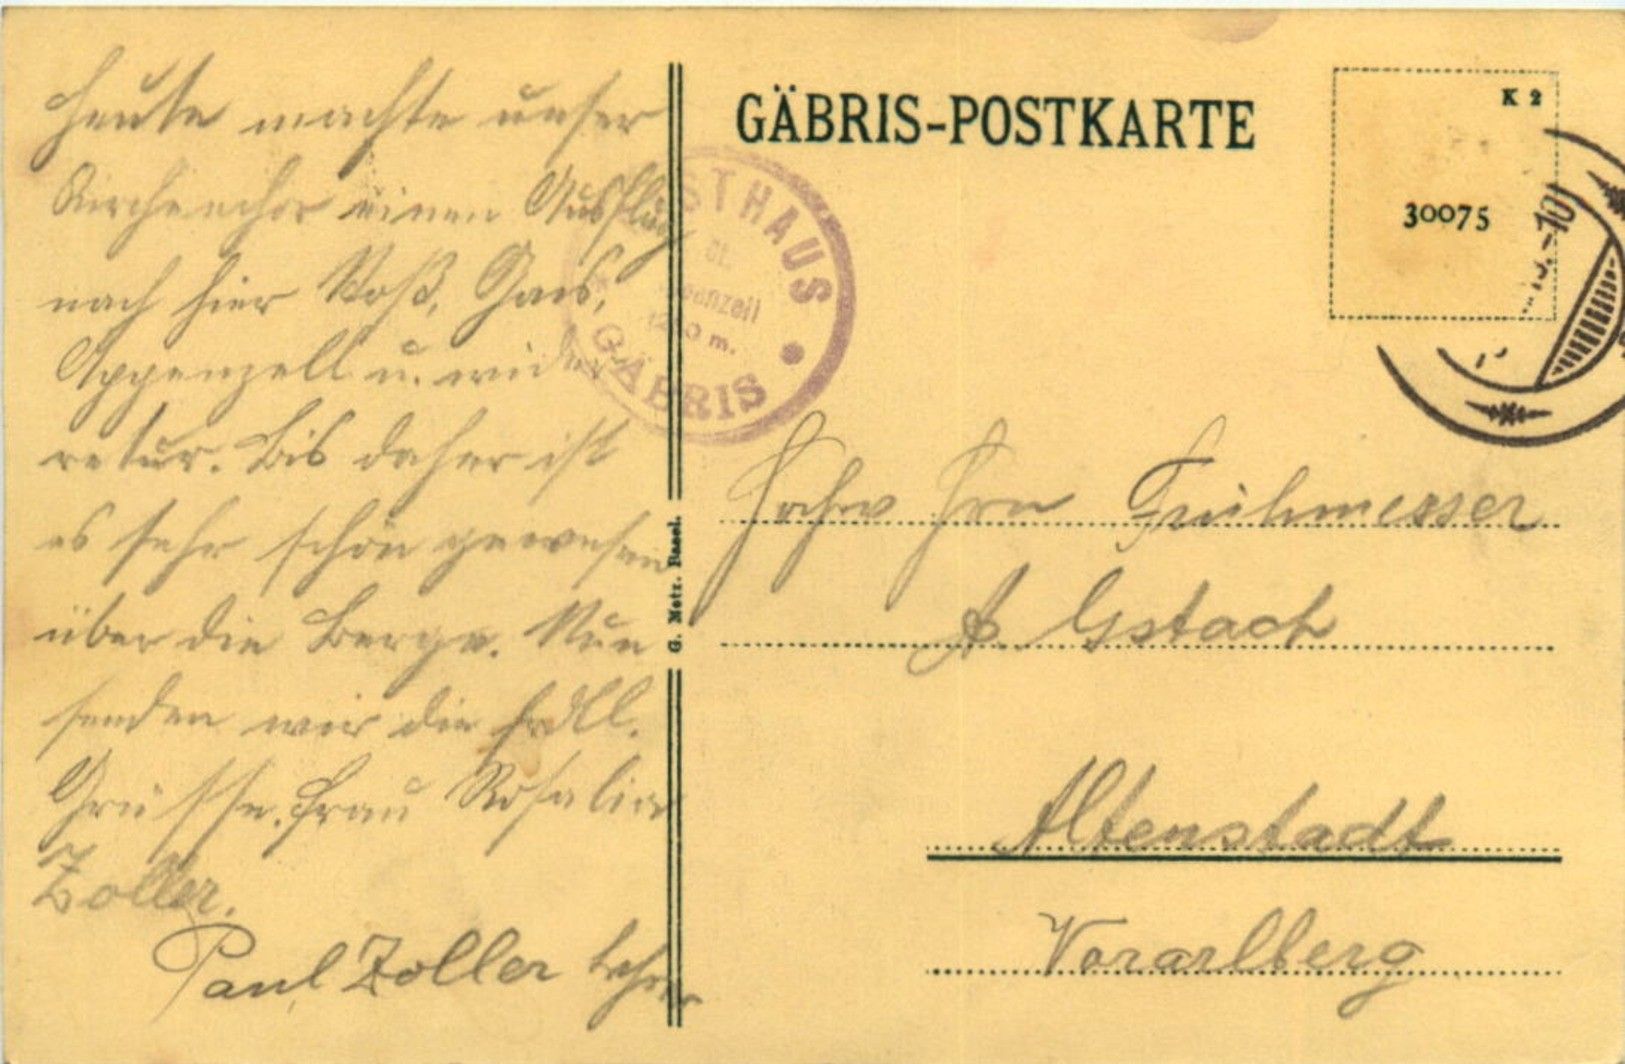 Heute machte unser
Kirchenchor einen Ausflug
nach hier Voß, Gais,
Appenzell u. wieder
retur. Bis daher ist
es sehr schön gewesen
über die Berge. Nun
senden wir die frdll.
Grüsse. Frau Rosalia
Zoller.
Paul Zoller Lehrer
G. Metz. Basel.
GÄBRIS-POSTKARTE
K 2
30075
GASTHAUS
GÄBRIS
Hochw Hrn Frühmesser
A. Gstach
Altenstadt
Vorarlberg